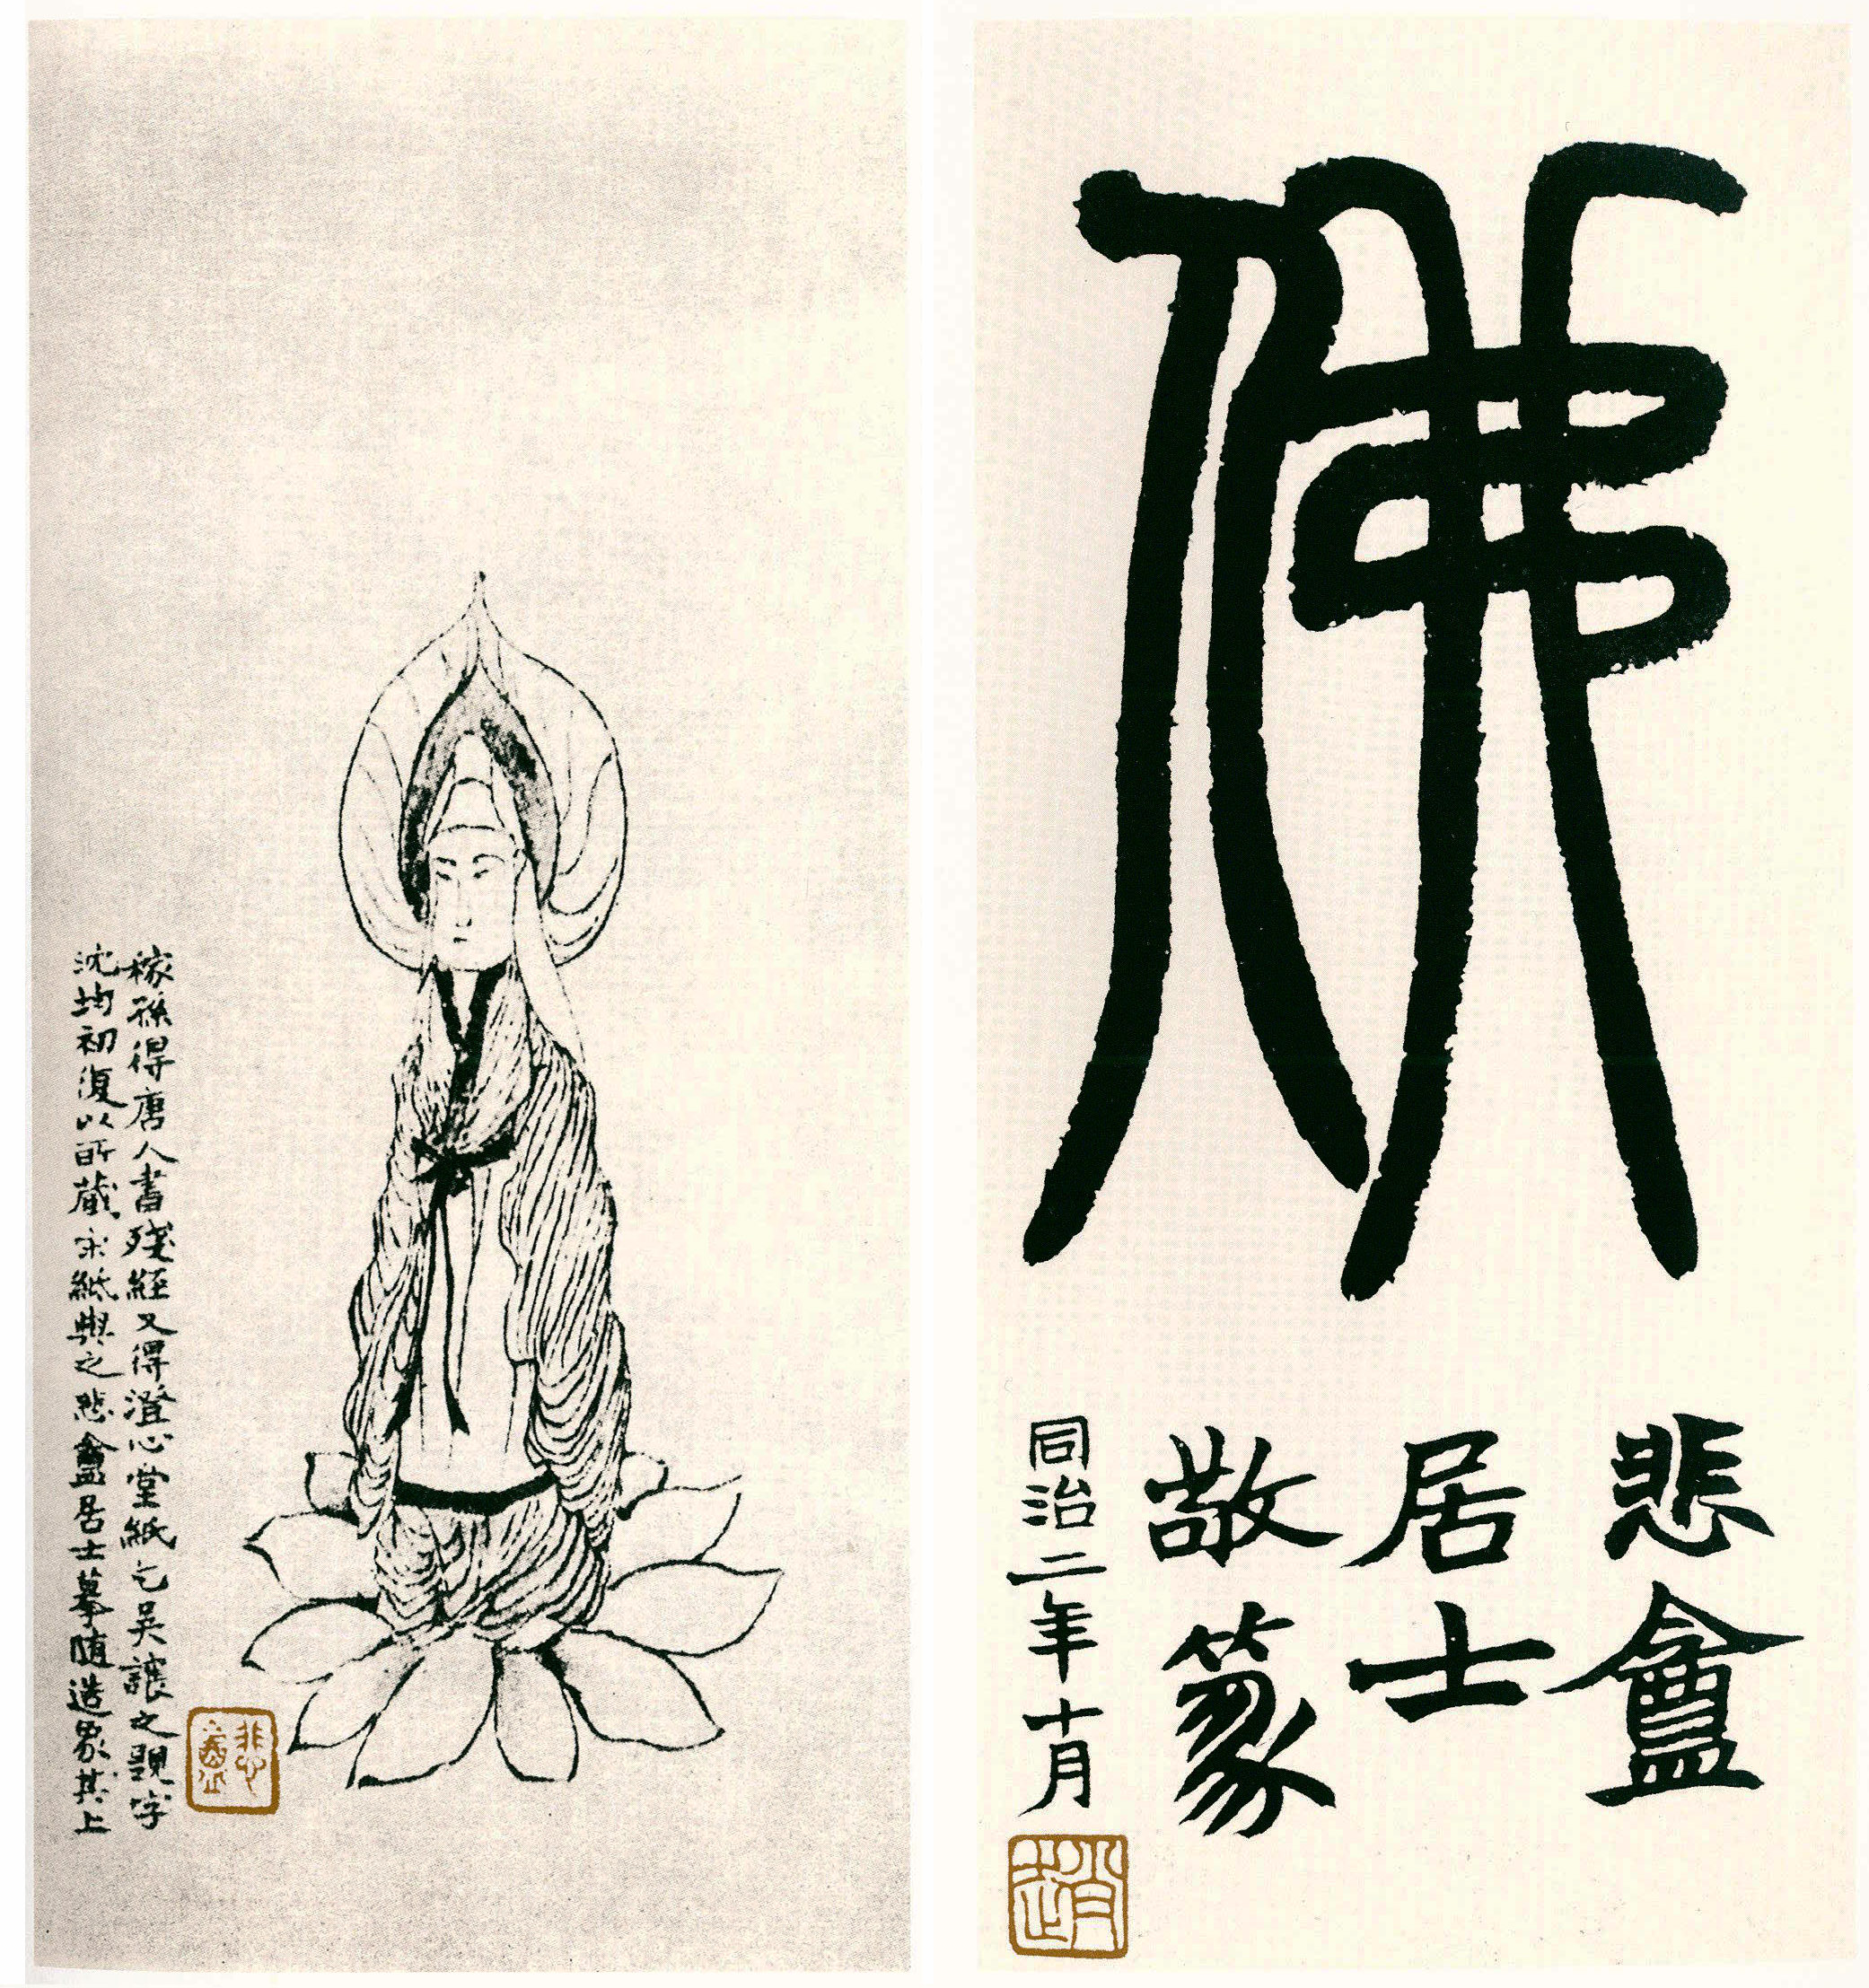 佛
悲盦
居士
敬篆
同治二年十月
趙
稼孫得唐人書殘經又得澄心堂紙乞吳讓之覬字
沈均初復以所藏宋紙與之悲盦居士摹隨造象其上
悲盦